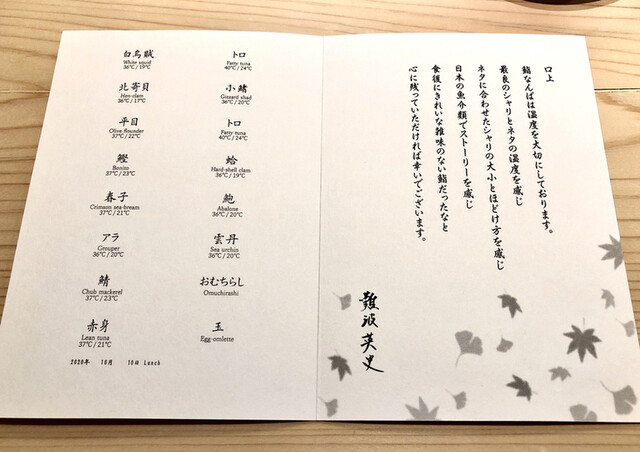 白烏賊
White squid
36℃ / 19℃
北寄貝
Hen-clam
36℃ / 17℃
平目
Olive flounder
37℃ / 22℃
鰹
Bonito
37℃ / 23℃
春子
Crimson sea-bream
37℃ / 21℃
アラ
Grouper
36℃ / 20℃
鯖
Chub mackerel
37℃ / 23℃
赤身
Lean tuna
37℃ / 21℃
トロ
Fatty tuna
40℃ / 24℃
小鰭
Gizzard shad
36℃ / 20℃
トロ
Fatty tuna
40℃ / 24℃
蛤
Hard-shell clam
36℃ / 19℃
鮑
Abalone
36℃ / 20℃
雲丹
Sea urchin
36℃ / 20℃
おむちらし
Omuchirashi
玉
Egg-omlette
2020年 10月 10日 Lunch
口上
鮨なんばは温度を大切にしております。
最良のシャリとネタの温度を感じ
ネタに合わせたシャリの大小とほどけ方を感じ
日本の魚介類でストーリーを感じ
食後にきれいな雑味のない鮨だったなと
心に残っていただければ幸いでございます。
難波英史